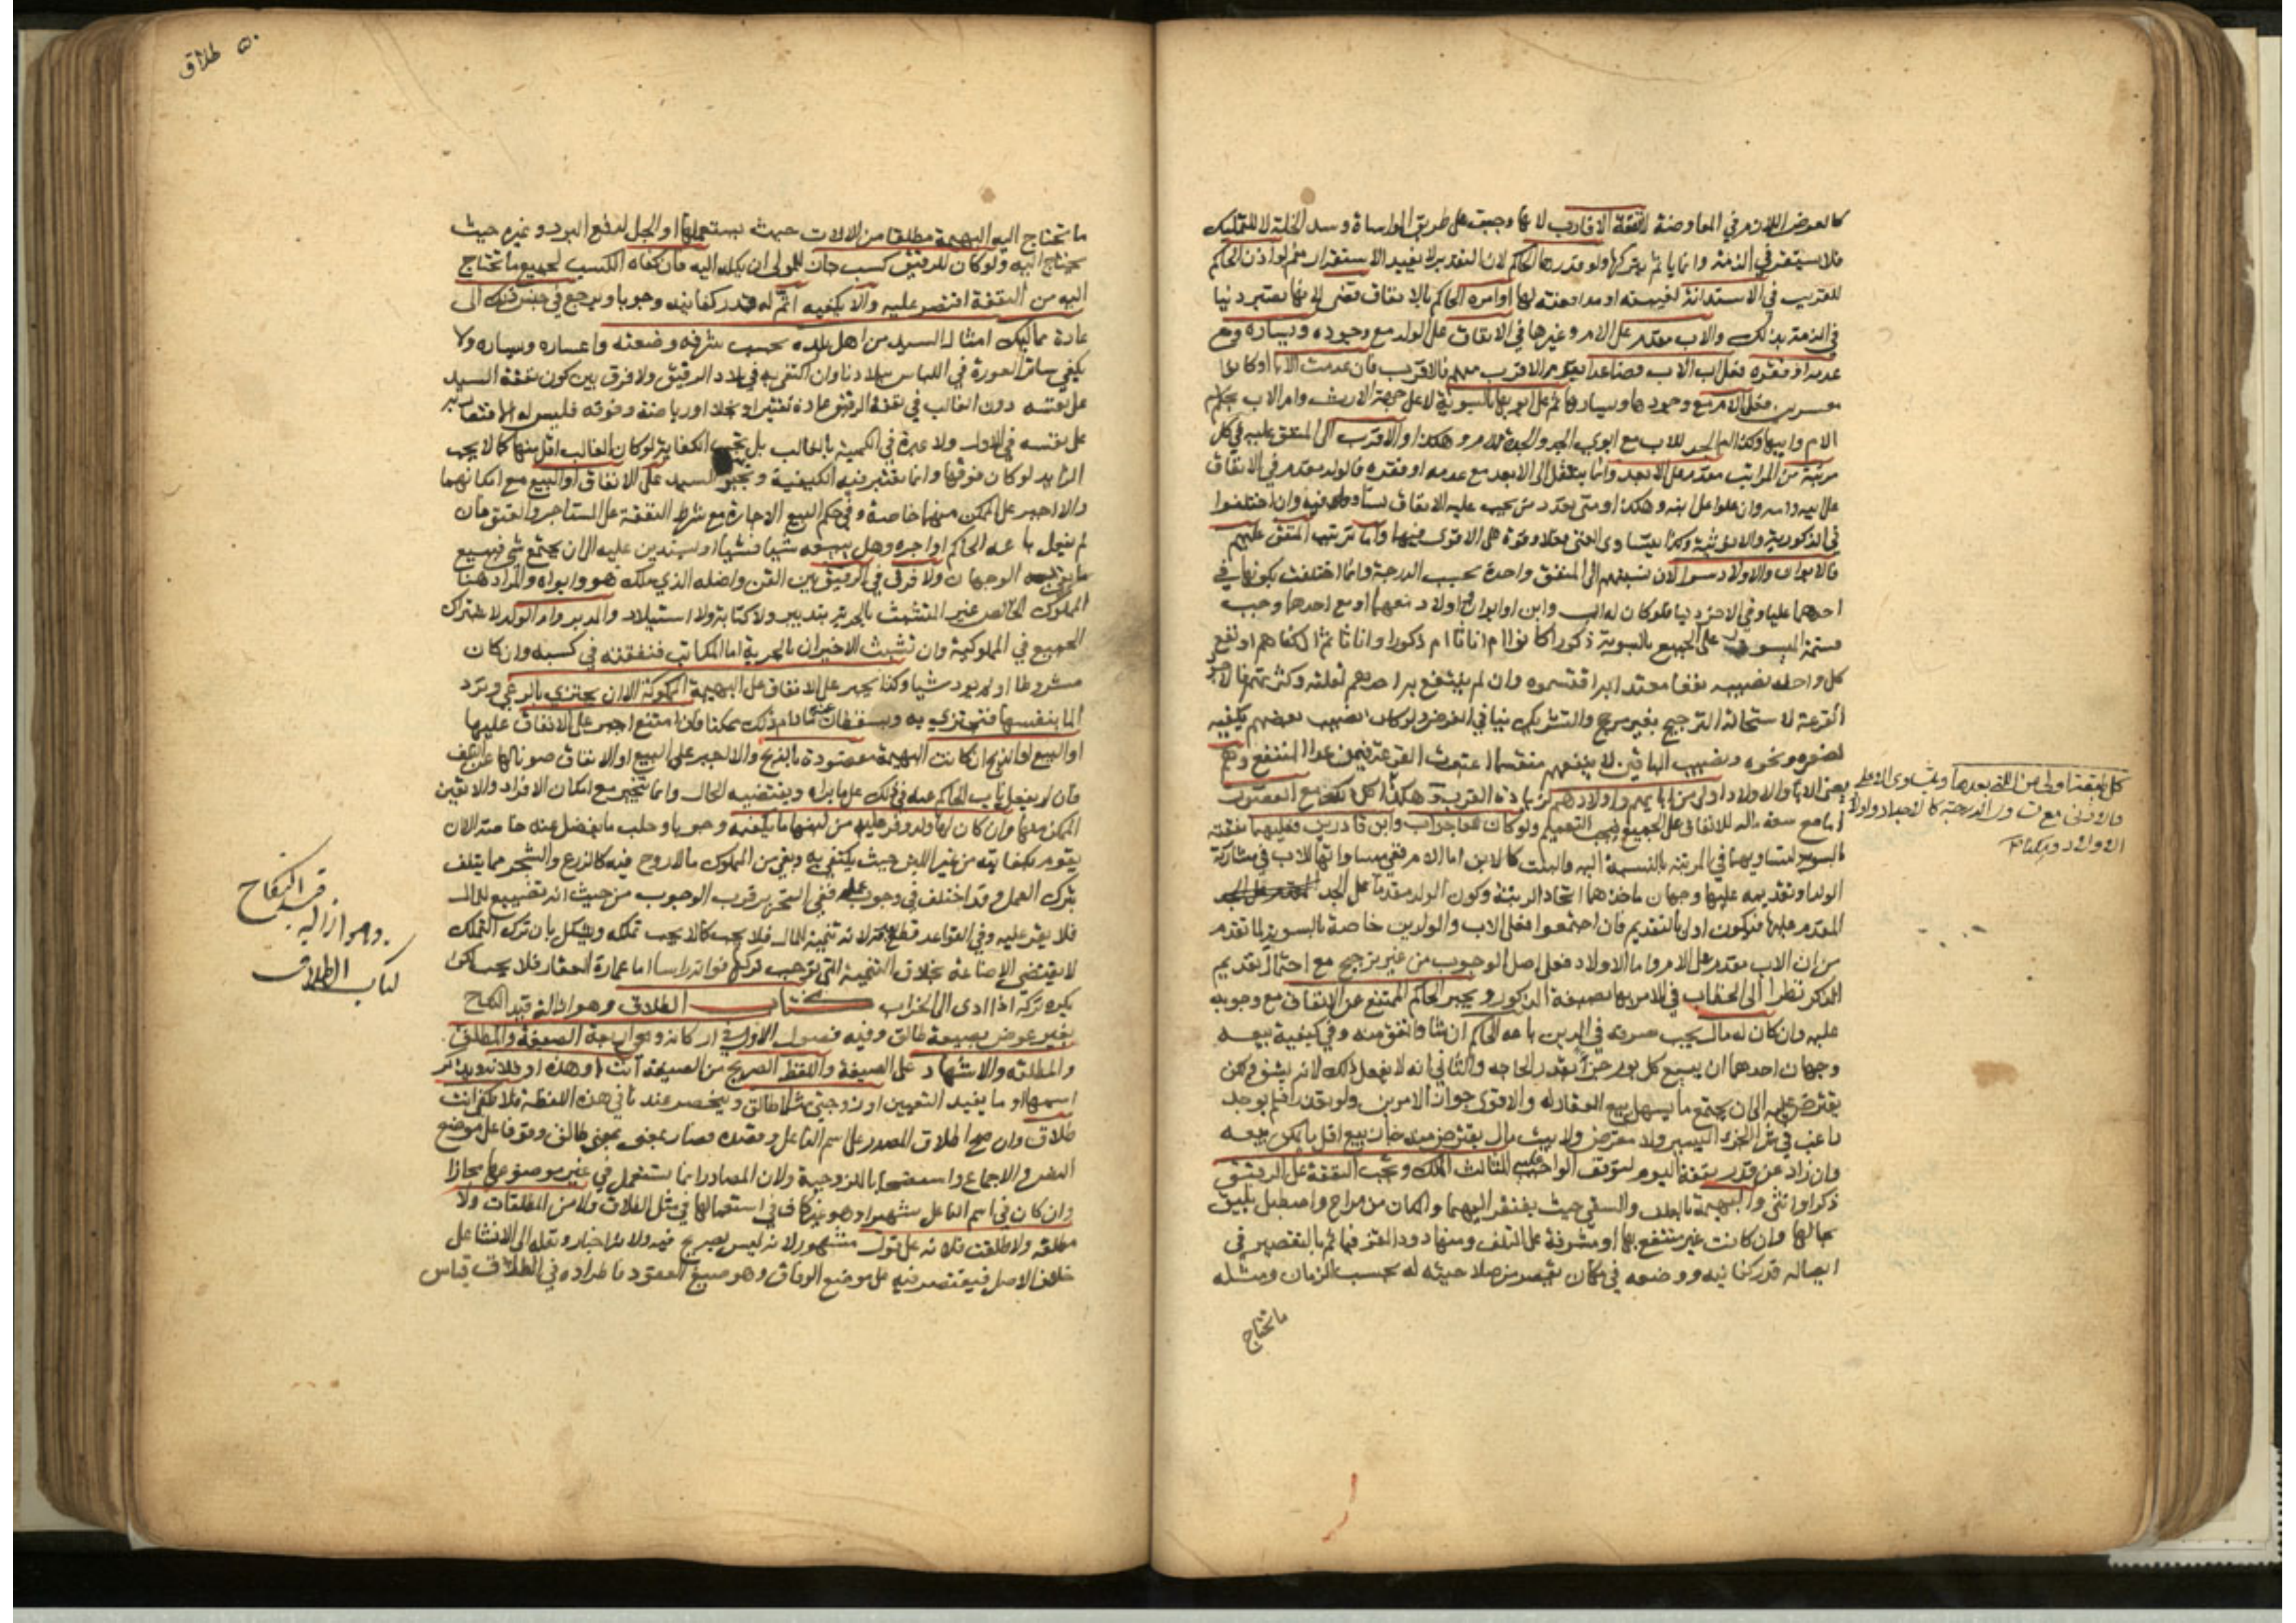 كالعوض اللازم في المعاوضة لا نفقة الاقارب لانها وجبت على طريق المواساة وسد الخلة لا للتمليك
فلا يستقر في الذمة وانما ياثم بتركها ولو قدرها الحاكم لان التقدير لا يفيد الاستقرار نعم لو اذن الحاكم
للقريب في الاستدانة لغيبته او مدافعته بها او امره الحاكم بالانفاق قضى لانها تصير دينا
في الذمة بذلك والاب مقدم على الام وغيرها في الانفاق على الولد مع وجوده ويساره ومع
عدمه او فقره فعلى اب الاب فصاعدا يقدم الاقرب منهم فالاقرب فان عدمت الآبا او كانوا
معسرين فعلى الام مع وجودها ويسارها ثم على ابويها بالسوية لا على جهة الارث وام الاب بحكم
الام وابيها وكذا ام الجد للاب مع ابوي الجد والجدة للام وهكذا والاقرب الى المنفق عليه في كل
مرتبة من المراتب مقدم على الابعد وانما ينتقل الى الابعد مع عدمه او فقره فالولد مقدم في الانفاق
على ابيه وامه وان علوا على ابنه وهكذا ومتى تعدد من يجب عليه الانفاق تساووا فيه وان اختلفوا
في الذكورية والانوثية وكذا يتساوى الغنى فعلا وقوة على الاقوى فيها واما ترتيب المنفق عليهم
فالابوان والاولاد سوا لان نسبتهم الى المنفق واحدة بحسب الدرجة وانما اختلفت بكونها في
احدهما عليا وفي الاخرى دنيا فلو كان له اب وابن او ابوان واولاد معهما او مع احدهما وجب
قسمة الميسور على الجميع بالسوية ذكورا كانوا ام اناثا ام ذكورا واناثا ثم ان كفاهم او نفع
كل واحد نصيبه نفعا معتدا به اقتسموه وان لم ينتفع به احدهم لقلته وكثرتهم فالاجود
القرعة لاستحالة الترجيح بغير مرجح والتشريك ينافي الغرض ولو كان نصيب بعضهم يكفيه
لصغره ونحوه ونصيب الباقين لا ينفعهم منقسما اعتبرت القرعة فيمن عدا المنتفع وهم
يعني الابا والاولاد اولى من ابايهم واولادهم لزيادة القرب وهكذا كل ذلك مع القصور
اما مع سعة ماله للانفاق على الجميع فيجب التعميم ولو كان للعاجز اب وابن قادرين فعليهما نفقته
بالسوية لتساويهما في المرتبة بالنسبة اليه والبنت كالابن اما الام ففي مساواتها للاب في مشاركة
الولد او تقديمه عليها وجهان ماخذهما اتحاد الرتبة وكون الولد مقدما على الجد
المقدم عليها فيكون اولى بالتقديم فان اجتمعوا فعلى الاب والولدين خاصة بالسوية لما تقدم
من ان الاب مقدم على الام واما الاولاد فعلى اصل الوجوب من غير ترجيح مع احتمال تقديم
الذكر نظرا الى الخطاب في الامر بها بصيغة الذكور ويجبر الحاكم الممتنع عن الانفاق مع وجوبه
عليه وان كان له مال يجب صرفه في الدين باعه الحاكم ان شا وانفق منه وفي كيفية بيعه
وجهان احدهما ان يبيع كل يوم جزا بقدر الحاجة والثاني انه لا يفعل ذلك لانه يشق ولكن
يقترض عليه الى ان يجتمع ما يسهل بيع العقار له والاقوى جواز الامرين ولو تعذرا فلم يوجد
راغب في شرا الجزء اليسير ولا مقرض ولا بيت مال يقترض منه جاز بيع اقل ما يمكن بيعه
وان زاد عن قدر نفقة اليوم لتوقف الواجب عليه الثالث الملك وتجب النفقة على الرقيق
ذكرا وانثى والبهيمة بالعلف والسقي حيث يفتقر اليهما والمكان من مراح واصطبل يليق
بحالها وان كانت غير منتفع بها او مشرفة على التلف ومنها دود القز فياثم بالتقصير في
ايصاله قدر كفايته ووضعه في مكان يقصر عن صلاحيته له بحسب الزمان ومثله
ما تحتاج
كل طبقة اولى من التي بعدها ويتساوى الاعلى
والادنى مع تساوي الدرجة كالاجداد واولاد
الاولاد
طلاق
ما تحتاج اليه البهيمة مطلقا من الالات حيث يستعملها او الجل لدفع البرد وغيره حيث
يحتاج اليه ولو كان للرقيق كسب جاز للمولى ان يكله اليه فان كفاه الكسب لجميع ما تحتاج
اليه من النفقة اقتصر عليه والا يكفيه اتم له قدر كفايته وجوبا ويرجع في جنس ذلك الى
عادة مماليك امثال السيد من اهل بلده بحسب شرفه وضعته واعساره ويساره ولا
يكفي ساتر العورة في اللباس ببلادنا وان اكتفي به في بلاد الرقيق ولا فرق بين كون نفقة السيد
على نفسه دون الغالب في نفقة الرقيق عادة تقتيرا او بخلا او رياضة وفوقه فليس له الاقتصار به
على نفسه في الاول ولا عبرة في الكمية بالغالب بل تجب الكفاية لو كان الغالب اقل منها كما لا يجب
الزايد لو كان فوقها وانما تعتبر فيه الكيفية ويجبر السيد على الانفاق او البيع مع امكانهما
والا اجبر على الممكن منهما خاصة وفي حكم البيع الاجارة مع شرط النفقة على المستاجر والعتق فان
لم يفعل باعه الحاكم او اجره وهل يبيعه شيئا فشيئا او يستدين عليه الى ان يجتمع شي فيبيع
ما يفي به الوجهان ولا فرق في الرقيق بين القن واصله الذي ملك هو وابواه والمراد هنا
المملوك الخالص غير المتشبث بالحرية بتدبير ولا كتابة ولا استيلاد والمدبر وام الولد لاشتراك
الجميع في المملوكية وان تشبث الاخيران بالحرية اما المكاتب فنفقته في كسبه وان كان
مشروطا او لم يود شيا وكذا يجبر على الانفاق على البهيمة المملوكة الا ان يجتزي بالرعي وترد
الما بنفسها فتجتزي به ويسقطان عنه ما دام ذلك ممكنا فان امتنع اجبر على الانفاق عليها
او البيع او الذبح ان كانت البهيمة مقصودة بالذبح والا اجبر على البيع او الانفاق صونا لها عن التلف
فان لم يفعل ناب الحاكم عنه في ذلك على ما يراه ويقتضيه الحال وانما يتخير مع امكان الافراد والا تعين
الممكن منها وان كان لها ولد وفر عليه من لبنها ما يكفيه وجوبا وحلب ما يفضل عنه خاصة الا ان
يقوم بكفايته من غير اللبن حيث يكتفي به وبقي من المملوك ما لا روح فيه كالزرع والشجر مما يتلف
بترك العمل وقد اختلف في وجوب عمله ففي التحرير قرب الوجوب من حيث انه تضييع للمال
فلا يقر عليه وفي القواعد قطع بعدمه لانه تنمية للمال فلا يجب كما لا يجب تملكه ويشكل بان ترك التملك
لا يقتضي الاضاعة بخلاف التنمية التي يوجب تركها فواته راسا اما عمارة العقار فلا يجب لكن
يكره تركه اذا ادى الى الخراب كتاب الطلاق وهو ازالة قيد النكاح
بغير عوض بصيغة طالق وفيه فصول الاول في اركانه وهي اربعة الصيغة والمطلق
والمطلقة والاشهاد على الصيغة واللفظ الصريح من الصيغة انت او هذه او فلانة ويذكر
اسمها او ما يفيد التعيين او زوجتي مثلا طالق وينحصر عندنا في هذه اللفظة فلا يكفي انت
طلاق وان صح اطلاق المصدر على اسم الفاعل وقصده فصار بمعنى طالق وقوفا على موضع
النص والاجماع واستصحابا للزوجية ولان المصادر انما تستعمل في غير موضوعها مجازا
وان كان في اسم الفاعل شهيرا وهو غير كاف في استعمالها في مثل الطلاق ولا من المطلقات ولا
مطلقة ولا طلقت فلانة على قول مشهور لانه ليس بصريح فيه ولانه اخبار ونقله الى الانشا على
خلاف الاصل فيقتصر فيه على موضع الوفاق وهو صيغ العقود فاطراده في الطلاق قياس
كتاب الطلاق
وهو ازالة
قيد النكاح